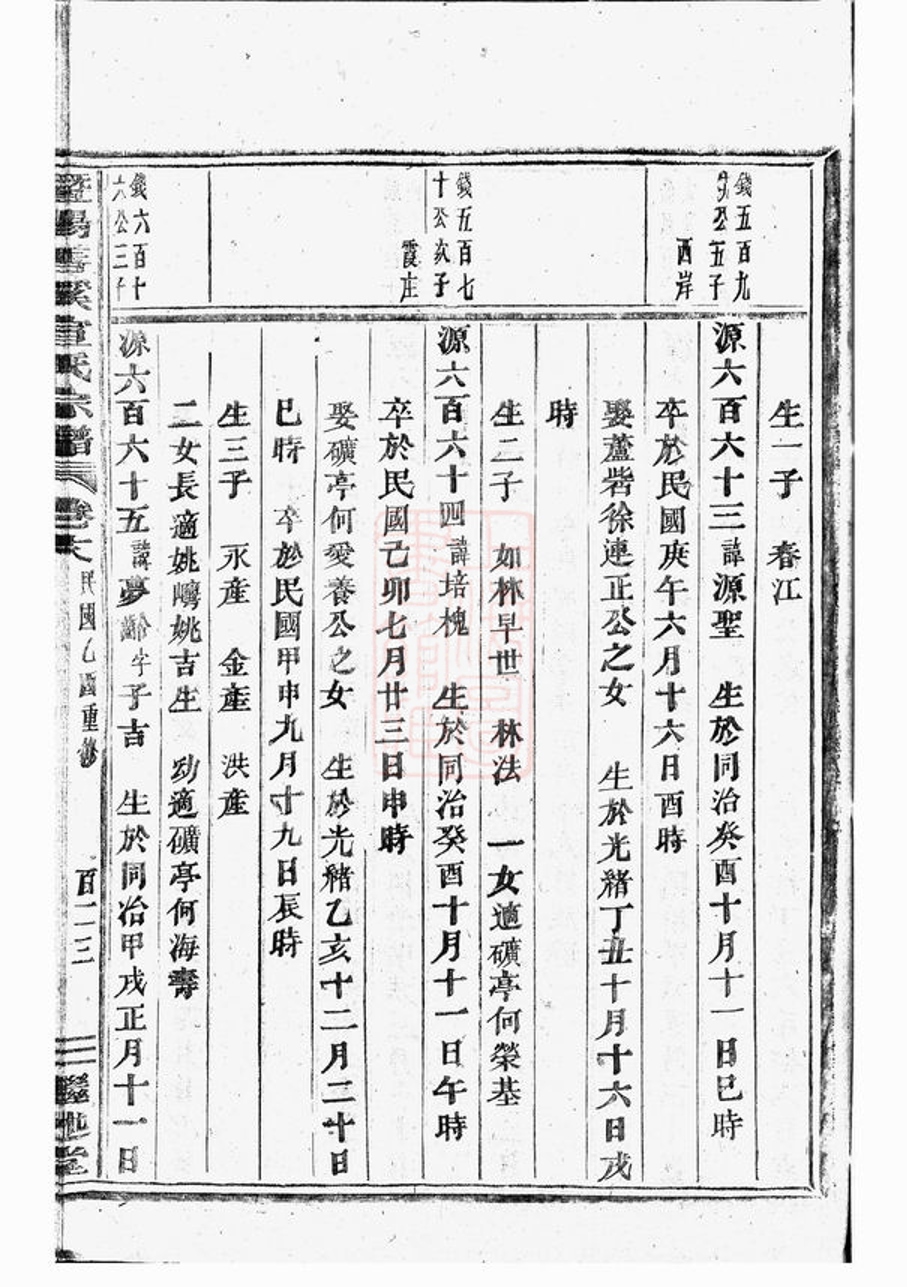 生一子　春江
錢五百九
公五子
西岸
源六百六十三諱源聖　生於同治癸酉十月十一日巳時
卒於民國庚午六月十六日酉時
娶蘆砦徐連正公之女　生於光緒丁丑十月十六日戌
時
生二子　如林早世　林法　一女適礦亭何榮基
錢五百七
十公次子
霞庄
源六百六十四諱培槐　生於同治癸酉十月十一日午時
卒於民國己卯七月廿三日申時
娶礦亭何愛養公之女　生於光緒乙亥十二月二十日
巳時　卒於民國甲申九月十九日辰時
生三子　永產　金產　洪產
二女長適姚㠘姚吉生　幼適礦亭何海壽
錢六百十
六公三子
源六百六十五諱夢齡字子吉　生於同治甲戌正月十一日
暨陽　溪　氏宗譜　卷六　民國乙酉重修　百二三　繼述堂